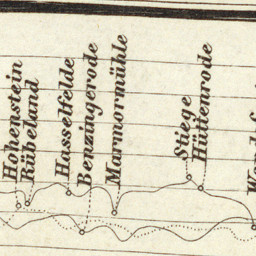 Hohenstein
Rübeland
Hasselfelde
Benzingerode
Marmormühle
Stiege
Hüttenrode